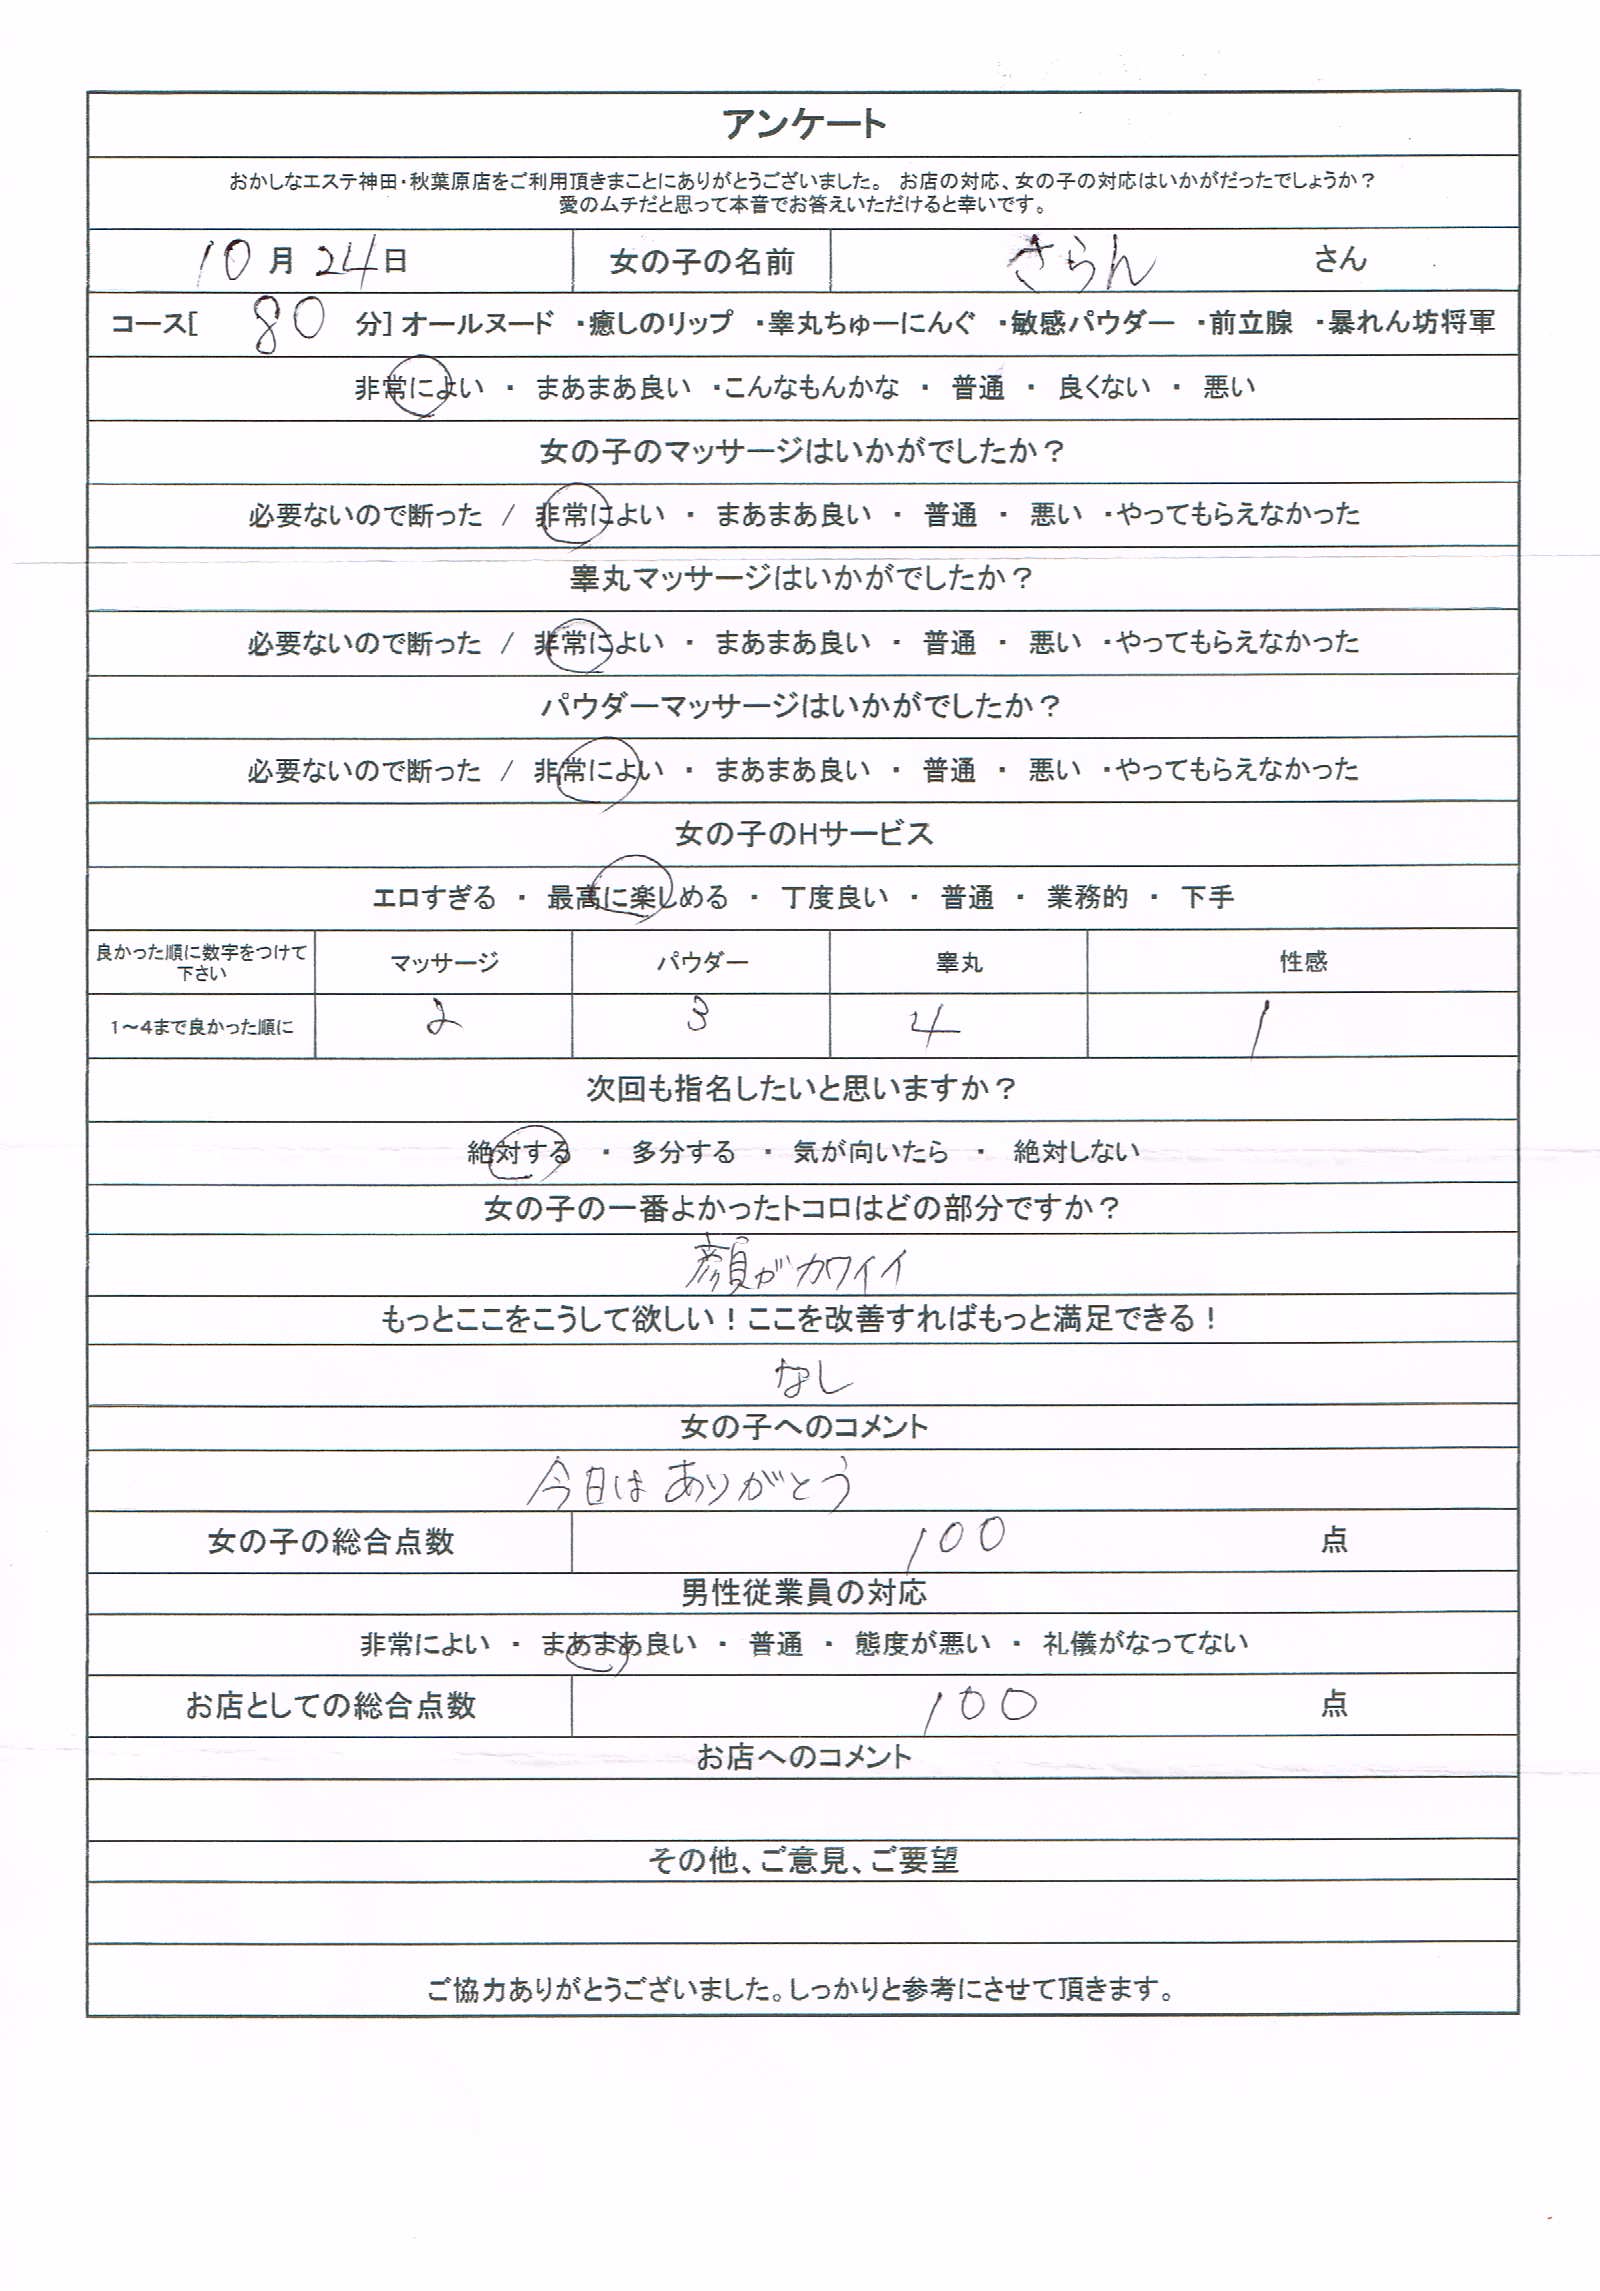 アンケート
おかしなエステ神田・秋葉原店をご利用頂きまことにありがとうございました。 お店の対応、女の子の対応はいかがだったでしょうか？
愛のムチだと思って本音でお答えいただけると幸いです。
10 月 24 日 女の子の名前 さらん さん
コース[ 80 分] オールヌード ・癒しのリップ ・睾丸ちゅーにんぐ ・敏感パウダー ・前立腺 ・暴れん坊将軍
非常によい ・ まあまあ良い ・こんなもんかな ・ 普通 ・ 良くない ・ 悪い
女の子のマッサージはいかがでしたか？
必要ないので断った / 非常によい ・ まあまあ良い ・ 普通 ・ 悪い ・やってもらえなかった
睾丸マッサージはいかがでしたか？
必要ないので断った / 非常によい ・ まあまあ良い ・ 普通 ・ 悪い ・やってもらえなかった
パウダーマッサージはいかがでしたか？
必要ないので断った / 非常によい ・ まあまあ良い ・ 普通 ・ 悪い ・やってもらえなかった
女の子のHサービス
エロすぎる ・ 最高に楽しめる ・ 丁度良い ・ 普通 ・ 業務的 ・ 下手
良かった順に数字をつけて
下さい
マッサージ パウダー 睾丸 性感
1～4まで良かった順に 2 3 4 1
次回も指名したいと思いますか？
絶対する ・ 多分する ・ 気が向いたら ・ 絶対しない
女の子の一番よかったトコロはどの部分ですか？
顔がカワイイ
もっとここをこうして欲しい！ここを改善すればもっと満足できる！
なし
女の子へのコメント
今日は ありがとう
女の子の総合点数 100 点
男性従業員の対応
非常によい ・ まあまあ良い ・ 普通 ・ 態度が悪い ・ 礼儀がなってない
お店としての総合点数 100 点
お店へのコメント
その他、ご意見、ご要望
ご協力ありがとうございました。しっかりと参考にさせて頂きます。